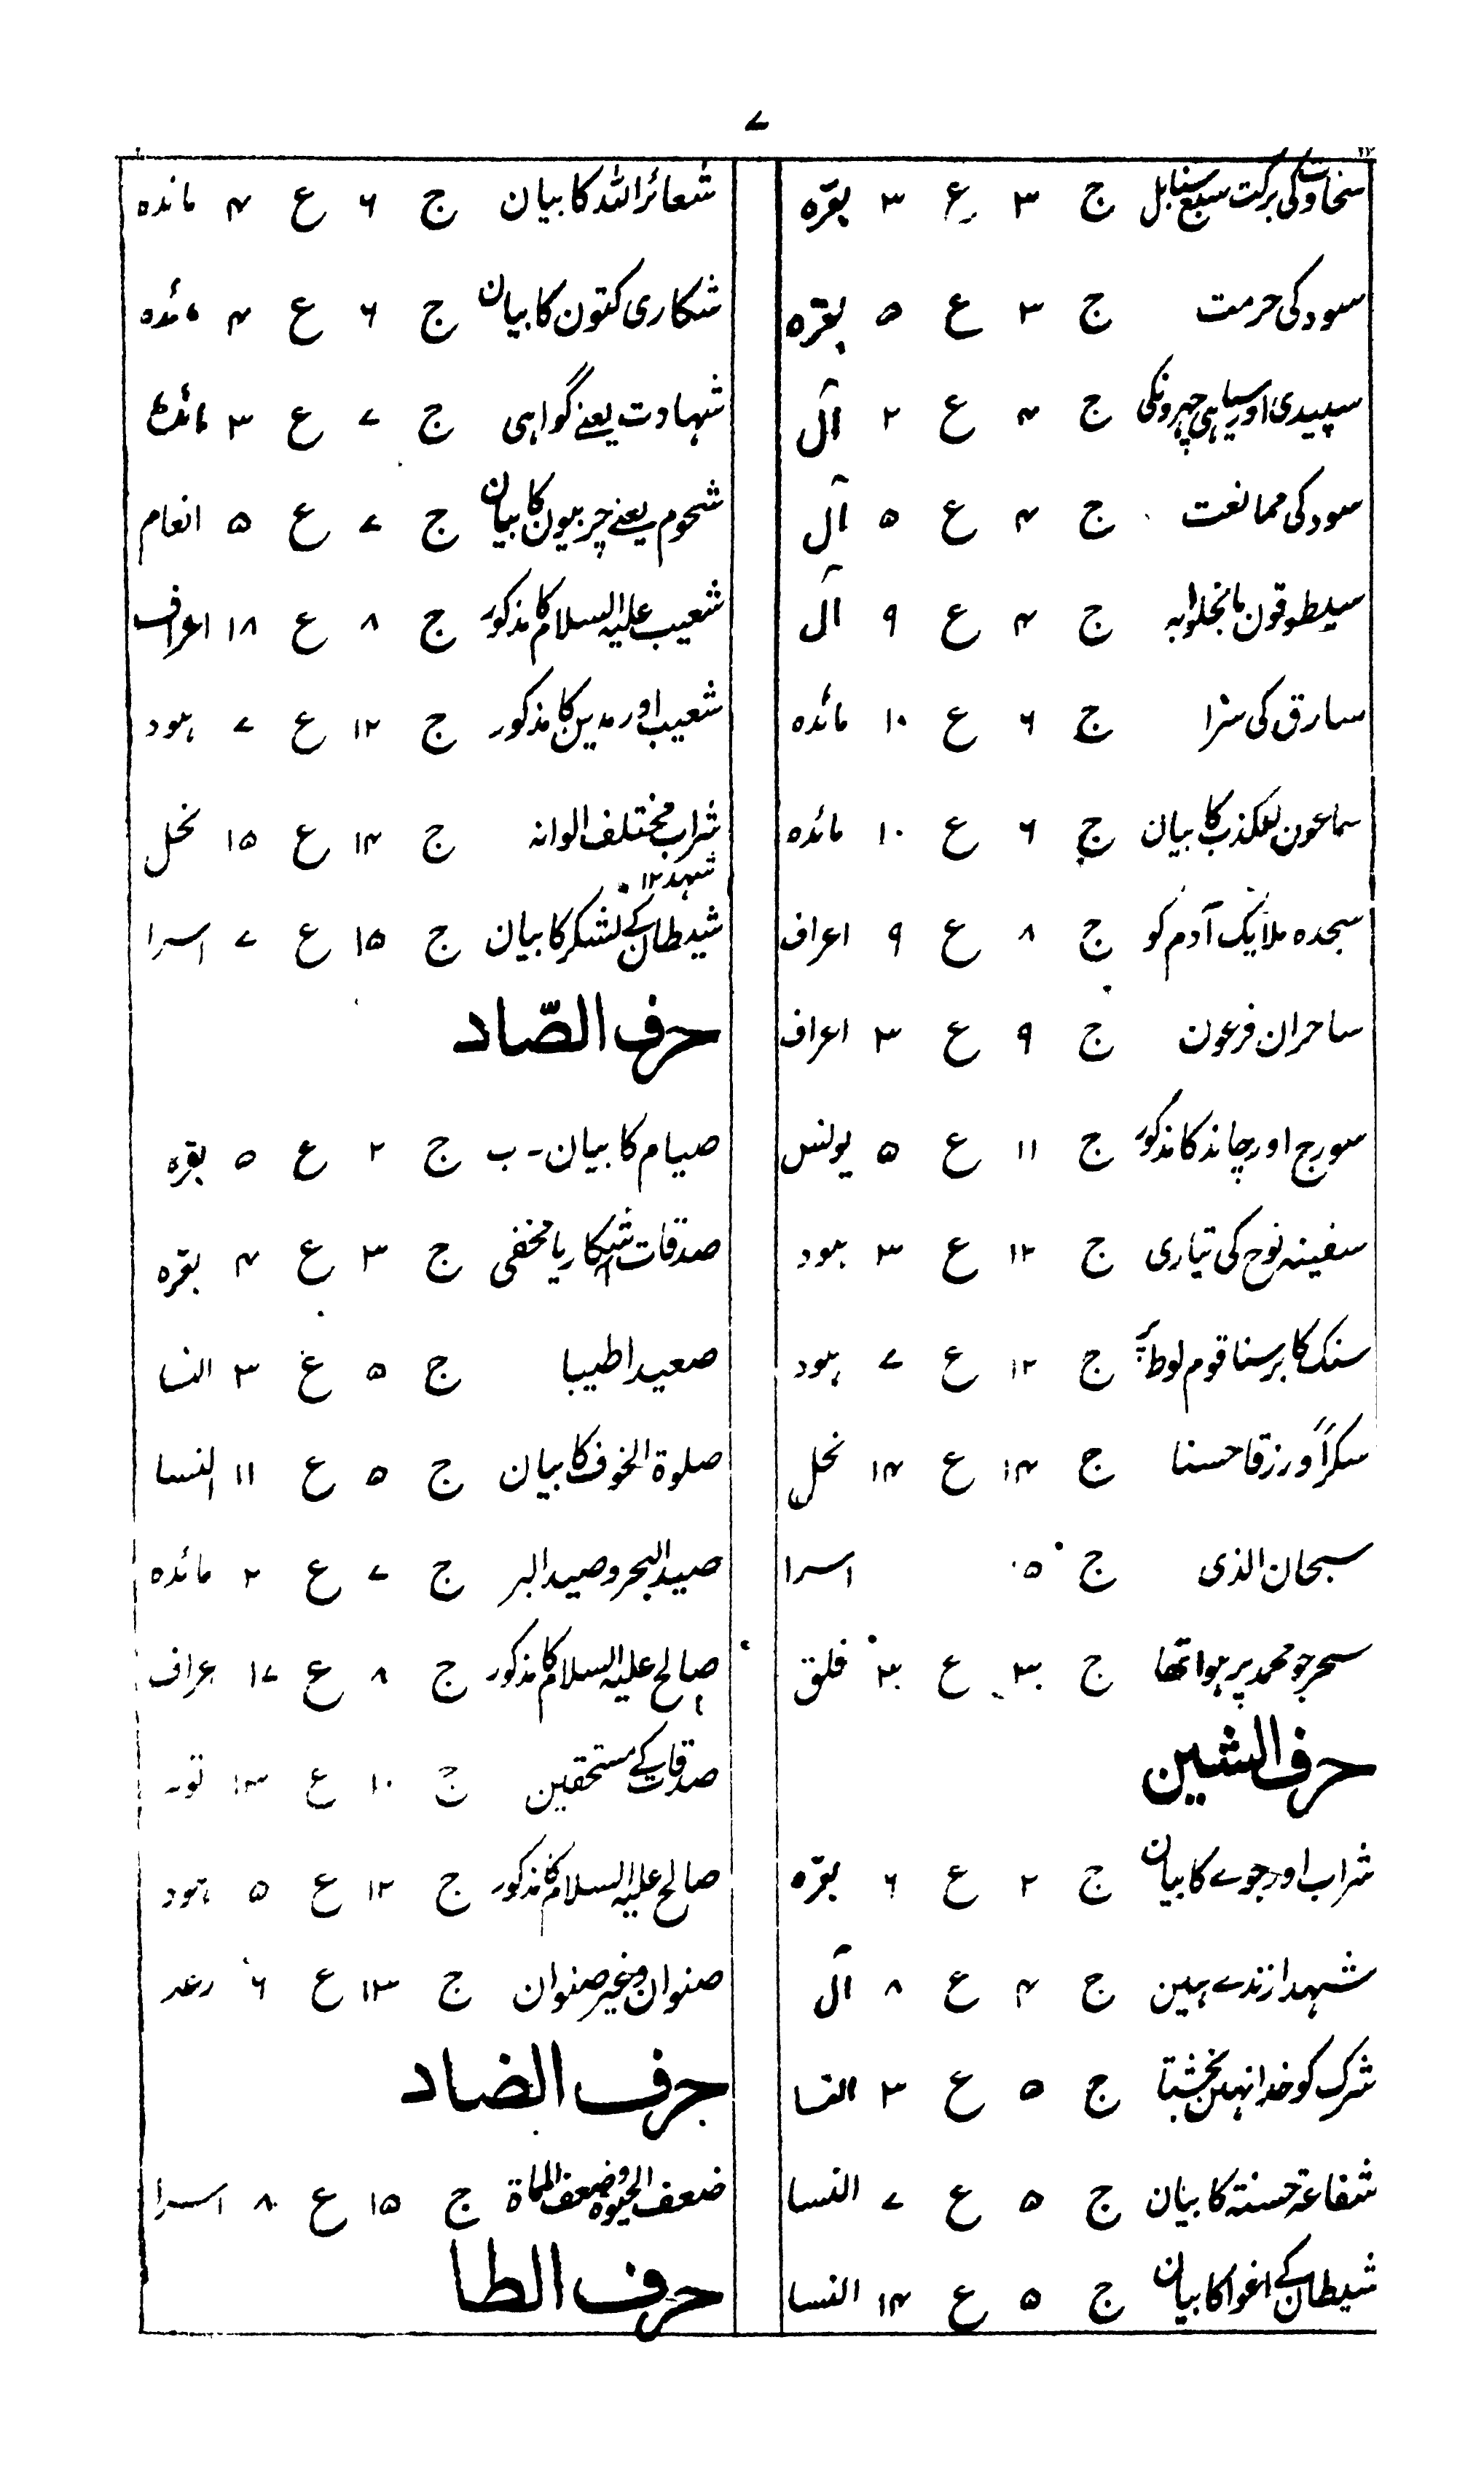 ۷
سخاوت کی برکت سبع سنابل ج ۳ ع ۳ بقرہ
سود کی حرمت ج ۳ ع ۵ بقرہ
سپیدی اور سیاہی چہرونکی ج ۴ ع ۲ آل
سود کی ممانعت ج ۴ ع ۵ آل
سیطوقون ما بخلوا بہ ج ۴ ع ۹ آل
سارق کی سزا ج ۶ ع ۱۰ مائدہ
سماعون للکذب کا بیان ج ۶ ع ۱۰ مائدہ
سجدہ ملایک آدم کو ج ۸ ع ۹ اعراف
ساحران فرعون ج ۹ ع ۳ اعراف
سورج اور چاند کا مذکور ج ۱۱ ع ۵ یونس
سفینہ نوح کی تیاری ج ۱۲ ع ۳ ہود
سنک کا برسنا قوم لوط پر ج ۱۲ ع ۷ ہود
سکراً ورزقا حسنا ج ۱۴ ع ۱۴ نحل
سبحان الذی ج ۵ اسرا
سحر جو محمد پر ہوا تھا ج ۳۰ ع ۳ فلق
حرف الشین
شراب اور جوے کا بیان ج ۲ ع ۶ بقرہ
شہدا زندے ہین ج ۴ ع ۸ آل
شرک کو خدا نہین بخشتا ج ۵ ع ۳ النسا
شفاعۃ حسنۃ کا بیان ج ۵ ع ۷ النسا
شیطان کے اغوا کا بیان ج ۵ ع ۱۴ النسا
شعائر اللہ کا بیان ج ۶ ع ۴ مائدہ
شکاری کتون کا بیان ج ۶ ع ۴ مائدہ
شہادت یعنے گواہی ج ۷ ع ۳ مائدہ
شحوم یعنے چربیون کا بیان ج ۷ ع ۵ انعام
شعیب علیہ السلام کا مذکور ج ۸ ع ۱۸ اعراف
شعیب اور مدین کا مذکور ج ۱۲ ع ۷ ہود
شراب مختلف الوانہ ج ۱۴ ع ۱۵ نحل
شہد ۱۲
شیطان کے لشکر کا بیان ج ۱۵ ع ۷ اسرا
حرف الصّاد
صیام کا بیان ۔ ب ج ۲ ع ۵ بقرہ
صدقات آشکار یا مخفی ج ۳ ع ۴ بقرہ
صعیدا طیبا ج ۵ ع ۳ النسا
صلوۃ الخوف کا بیان ج ۵ ع ۱۱ النسا
صید البحر وصید البر ج ۷ ع ۲ مائدہ
صالح علیہ السلام کا مذکور ج ۸ ع ۱۷ عراف
صدقات کے مستحقین ج ۱۰ ع ۱۳
صالح علیہ السلام کا مذکور ج ۱۲ ع ۵ ہود
صنوان وغیر صنوان ج ۱۳ ع ۶ رعد
حرف الضاد
ضعف الحیوۃ وضعف المماۃ ج ۱۵ ع ۸ اسرا
حرف الطا